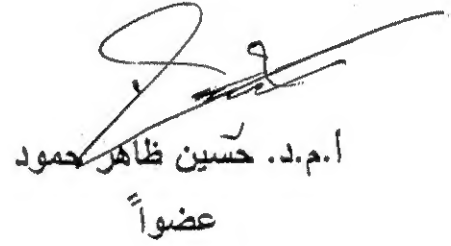 أ.م.د. حسين ظاهر حمود
عضواً